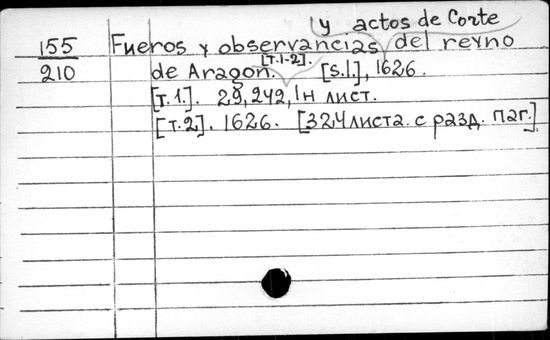 y actos de Corte
155 Fueros y observancias del reyno
210 de Aragon. [т.1-2]. [s.l.], 1626.
[т.1]. 29, 242, 1н лист.
[т.2]. 1626. [324 листа. с разд. паг.]